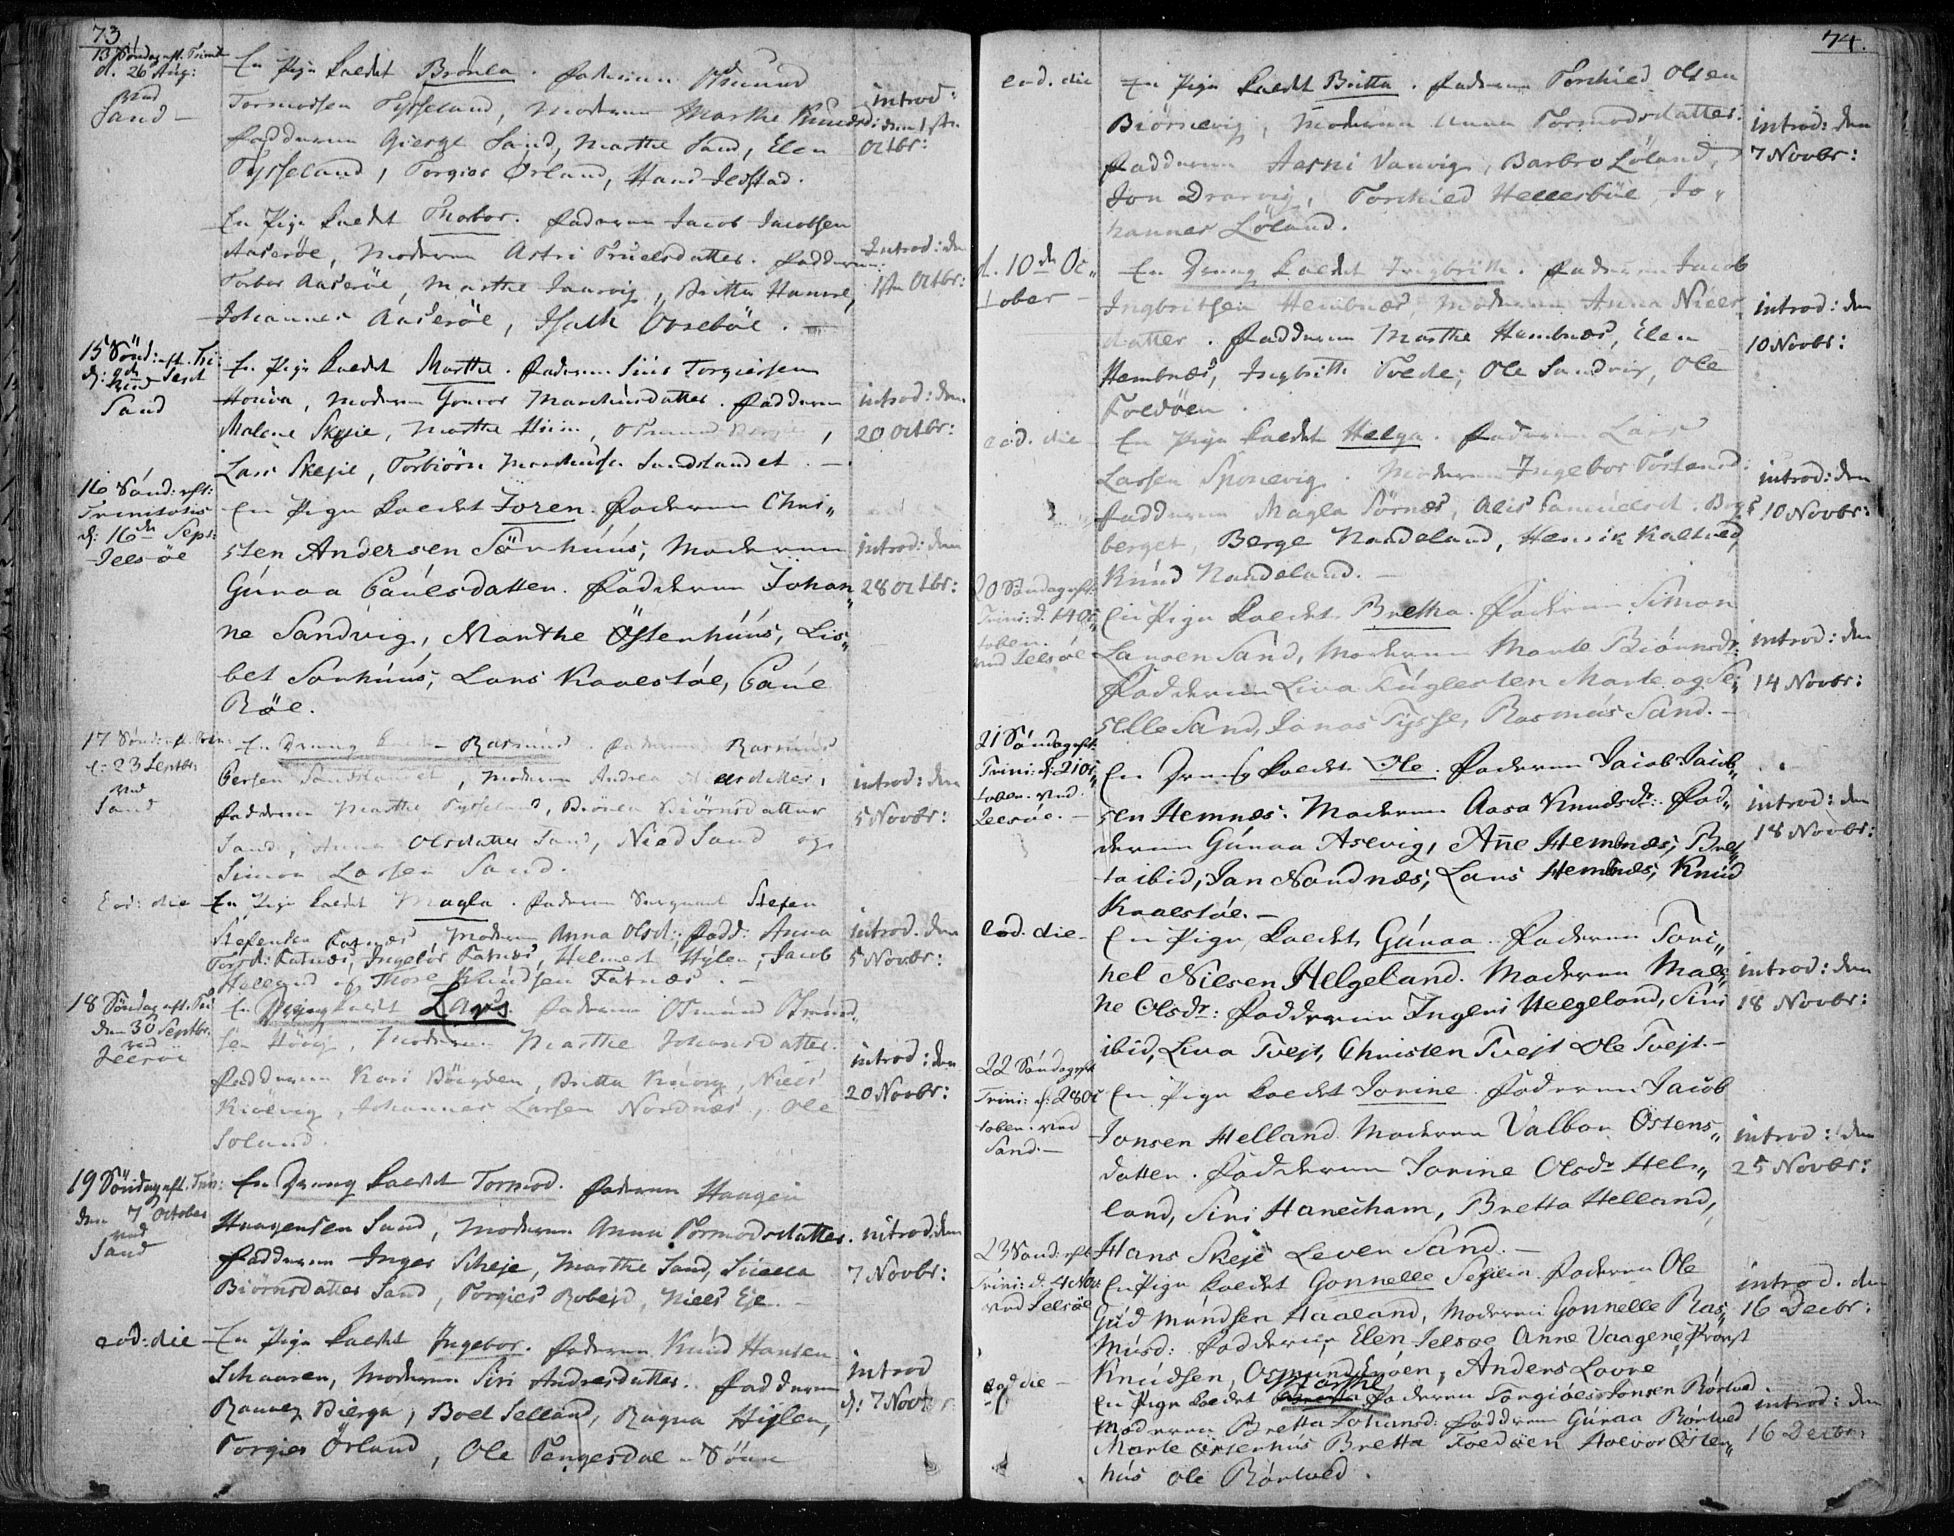 73
13 Söndag aft. Trinit
d. 26 Aug:
ved
Sand
En Pige kaldet Brönla. Faderen Osmund
Tormodsen Tysseland, Moderen Marthe Knudsd:
Fadderne Giergt Sand, Marthe Sand, Elen
Tysseland, Torgies Ørland, Hans Jelstad.
introd:
den 1ste
Octbr:
En Pige kaldet Thobor. Faderen Jacob Jacobsen
Aaserøe, Moderen Astri Truelsdatter. Fadderne
Torbor Aaserøe, Marthe Jaarvig, Britta Hamre,
Johannes Aaserøe, Isach Ovrebøe.
Introd: den
1ste Octbr:
15 Sönd: aft. Tri:
d: 9de Sept
ved
Sand
En Pige kaldet Marthe. Faderen Siur Torgiersen
Houva, Moderen Gouror Marchusdatter. Fadderne
Malene Skeje, Marthe Hiim, Osmund
Lars Skejie, Torbiörn Marchusen Sandslandet.
introd: den
20 Octbr:
16 Sönd: aft:
Trinitatis
d: 16de Sept:
Jelsöe
En Pige kaldet Joren. Faderen Chri„
sten Andersen Sörhuus, Moderen
Gunaa Paulsdatter. Fadderne Johan„
ne Sandvig, Marthe Östenhuus, Lis„
bet Sörhuus, Lars Kaaestøe, Paul
Røe.
introd: den
28 Octbr:
17 Sönd: aft. Trin.
d: 23 Septbr:
ved
Sand
En Dreng kaldet Rasmus. Faderen Rasmus
Persen Sandslandet, Moderen Andrea
Fadderne Marthe Tysseland, Brönla Biörnsdatter
Sand, Anna Olsdatter Sand, Niels Sand og
Simon Larsen Sand.
introd: den
5 Novbr:
Eod: die
En Pige kaldet Magla. Faderen Sergeant Stefen
Stefensen Fatnæs, Moderen Anna Olsd: Fadd: Anna
Torsd: Fatnæs, Ingebor Fatnæs, Helmert Hylen, Jacob
Helland og Thore Knudsen Fatnæs.
introd. den
5 Novbr:
18 Söndag aft. Tri:
den 30 Septbr:
ved
Jelsöe
En Dreng kaldet Lars. Faderen Osmund Osmund„
sen Høvig, Moderen Marthe Johansdatter.
Fadderne Kari Böegden, Britta Knörg, Niels
Kiölvig, Johannes Larsen Nordnæs, Ole
Soland.
introd: den
20 Novbr:
19 Söndag aft. Trin:
den 7 October
ved
Sand
En Dreng kaldet Tormod. Faderen Haagen
Haagensen Sand, Moderen Anna Tormodsdatter.
Fadderne Inger Scheje, Marthe Sand,
Biörnsdatter Sand, Torgies Robejd, Niels Eje.
introd: den
7 Novbr:
eod: die
En Pige kaldet Ingebor. Faderen Knud Hansen
Schaaren, Moderen Siri Andersdatter. Fadderne
Rannei Bierga, Boel Selland, Ragna Hiylen,
Torgies Örland, Ole Tengesdal Sönn
introd
d: 7 Novbr
74.
eod. die
En Pige kaldet Britta. Faderen Torkied Olsen
Biörnevig, Moderen Anna Tormodsdatter.
Fadderne Aasni Vanvig, Barbro Löland,
Jon Drarvig, Torkied Hellesbøe, Jo„
hannes Löland.
introd: den
7 Novbr:
d. 10de Oc„
tober
En Dreng kaldet Ingbrith. Faderen Jacob
Ingbritsen Hembnæs, Moderen Anna Niels„
datter. Fadderne Marthe Hembnæs, Elen
Hembnæs, Ingbritt Foede, Ole Sandvig, Ole
Foedøen.
introd: den
10 Novbr:
eod. die
En Pige kaldet Helga. Faderen Lars
Larsen Sponevig. Moderen Ingebor Torstensd:
Fadderne Magla Sörnæs, Alis Samuelsd.
berget, Berge Nandeland, Henrik Kaltved,
Knud Nandeland.
introd: den
10 Novbr:
20 Söndag aft.
Trini: d. 14 Oc„
tober.
ved Jelsöe
En Pige kaldet Bretha. Faderen Simon
Larsen Sand, Moderen Marte Biörnsdr:
Fadderne Liva Fuglesten, Marte og Se„
selle Sand, Jonas Tysse, Rasmus Sand.
introd: den
14 Novbr:
21 Söndag aft
Trini: d. 21 Oc„
tober. ved
Jelsöe.
En Dreng kaldet Ole. Faderen Jacob Jacob„
sen Hemnæs. Moderen Aasa Knudsdr: Fad„
derne Gunaa Asevig, Añe Hembnæs, Bret„
ta ibid, Jan Nandnæs, Lars Hembnæs, Knud
Kaaestøe.
introd: den
18 Novbr:
eod. die
En Pige kaldet Gunaa. Faderen Tori„
kel Nielsen Helgeland. Moderen Male„
ne Olsdr: Fadderne Ingeri Helgeland, Siri
ibid, Liva Tvejt, Christen Tvejt Ole Tvejt.
introd: den
18 Novbr:
22 Söndag aft
Trini: d: 28 Oc
tober. ved
Sand.
En Pige kaldet Jorine. Faderen Jacob
Jonsen Helland Moderen Valbor Østens„
datter. Fadderne Jorine Olsdr Hel„
land, Siri Haneiham, Bretta Helland,
Hans Skeje Leven Sand.
introd: den
25 Novbr:
23 Sönd: aft
Trini: d. 4 Nov
ved Jelsöe
En Pige kaldet Gonnelle Sesilia Faderen Ole
Gudmundsen Haaland, Moderen Gonnelle Ras„
musd: Fadderne Elen Jelsøe Anne Vaagene, Provst
Knudsen, Osmund Foedøen, Anders Lovre
introd. den
16 Decbr:
eod die
En Pige kaldet Marthe Faderen Torgioes Jonsen Rörtved.
Moderen Bretta Johansd: Fadderne Gunaa Rörtved
Marte Østerhus Bretta Foedøen Halvor Østen„
hus Ole Rörtved.
introd: den
16 Decbr: